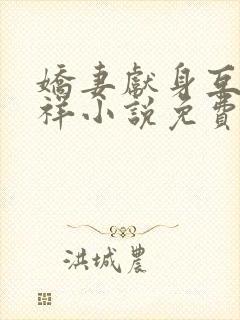 嬌妻獻身互
祥小說免費
洪城農